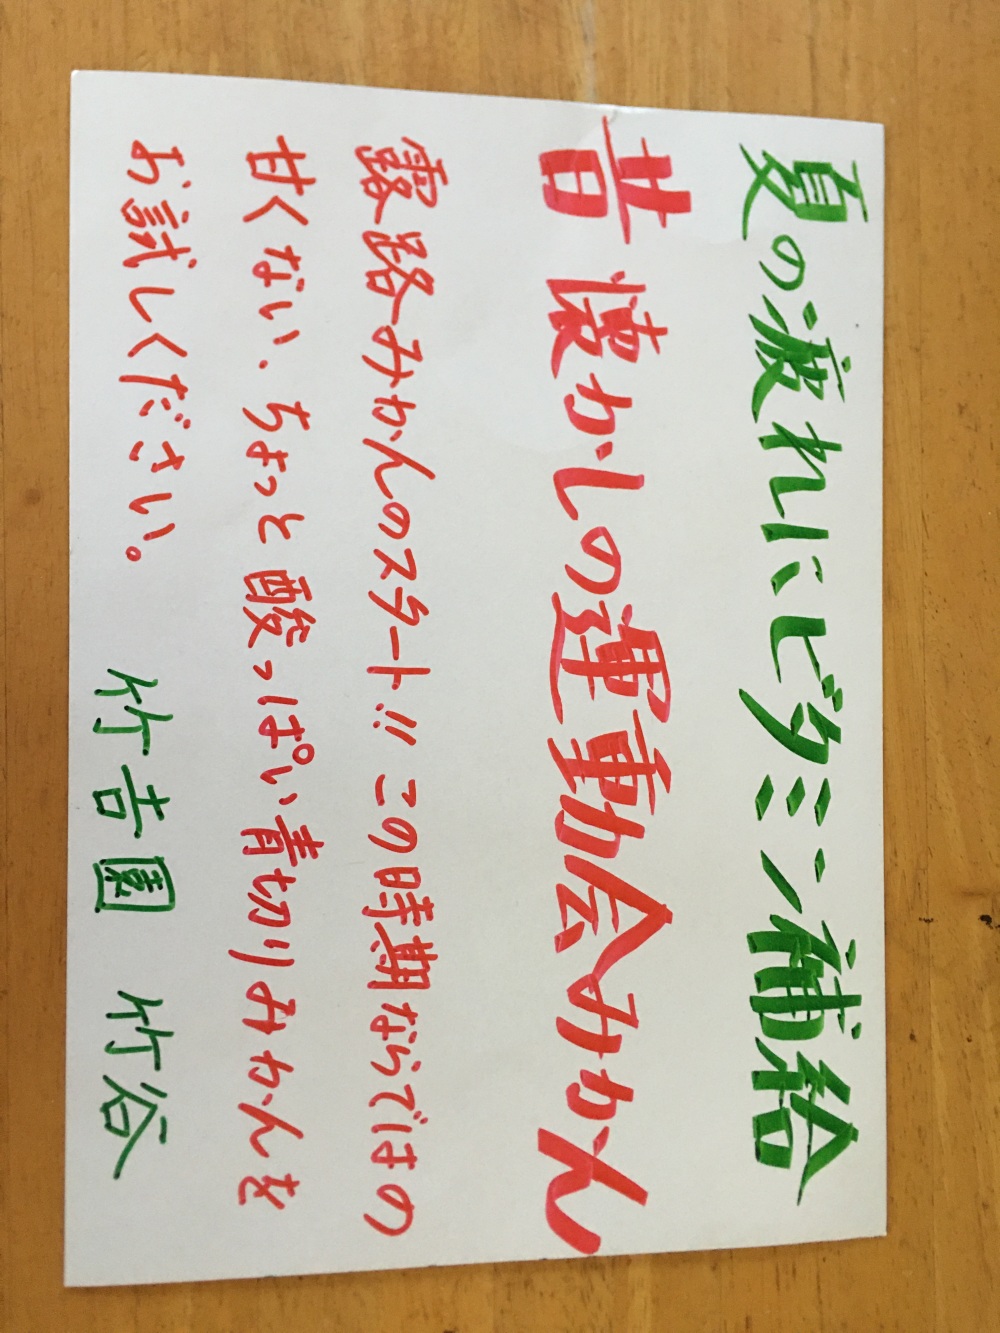 夏の疲れにビタミン補給
昔懐かしの運動会みかん
露路みかんのスタート!! この時期ならではの
甘くない、ちょっと酸っぱい青切りみかんを
お試しください。
竹吉園 竹谷